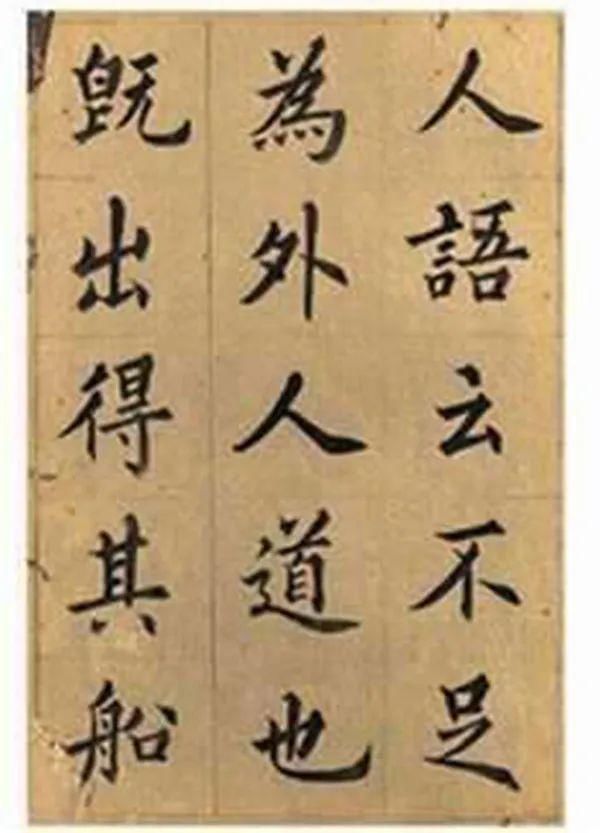 人語云不足
為外人道也
既出得其船